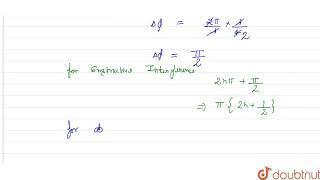 Δφ = 2π/λ × λ/4 2
Δφ = π/2
for Constructive Interference
2nπ + π/2
⇒ π { 2n + 1/2 }
for do
doubtnut